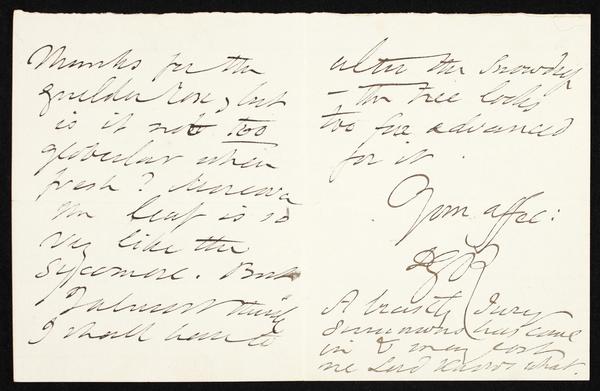 Thanks for the
guelder rose, but
is it not too
globular when
fresh? Moreover
the leaf is so
very like the
sycamore. But
I almost think
I shall have to
alter the snowdrop
— the tree looks
too far advanced
for it.
Your affec:
DGR
A beastly Jury
Summons has come
in & may cost
me Lord knows what.